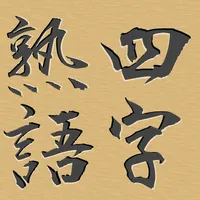 四字
熟語